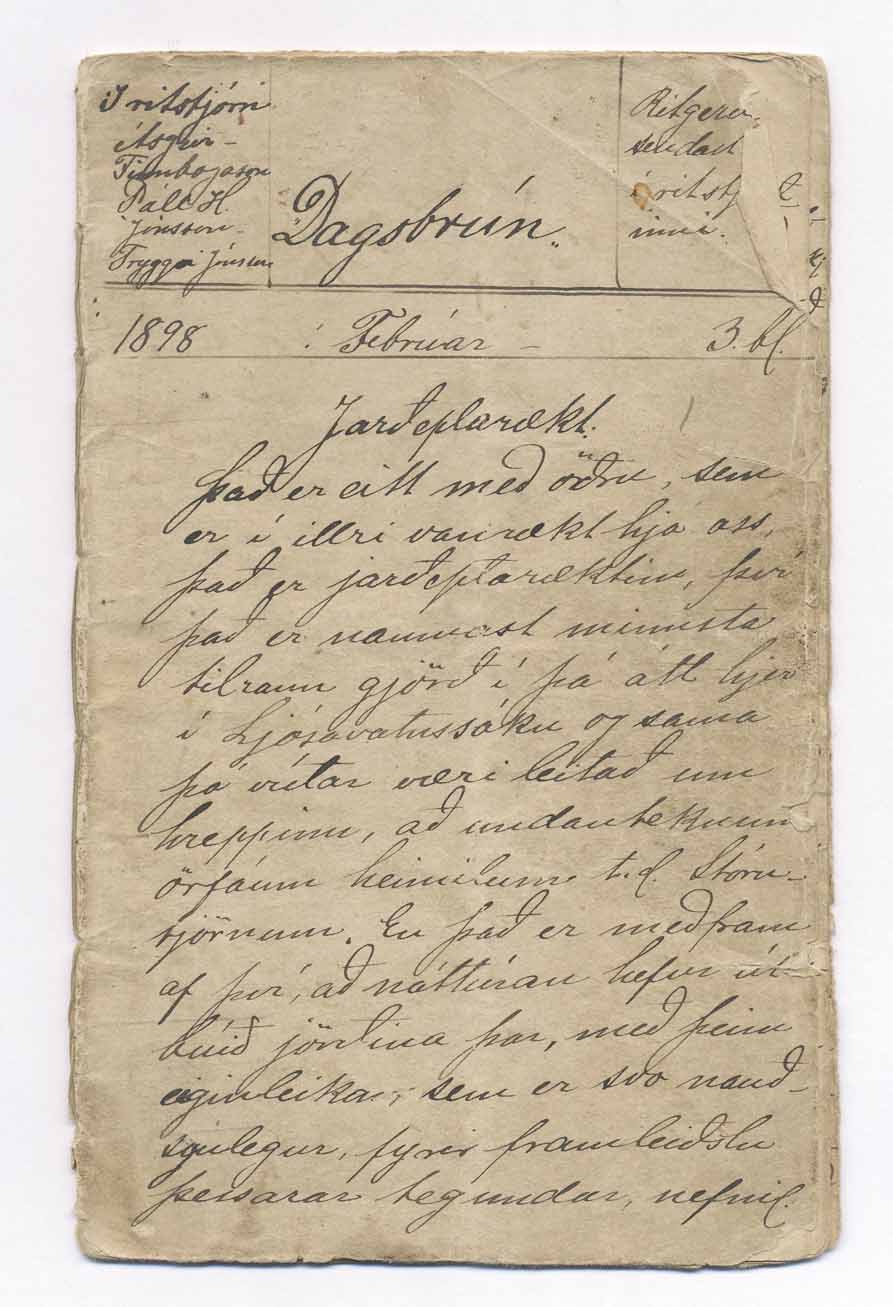 Í ritstjórn
Ásgeir
Finnbogason
Páll H.
Jónsson
Tryggvi Jónsson
„Dagsbrún"
Ritgerð
sendast
í ritst
inni.
1898 í Febrúar 3. bl.
Jarðeplarækt.
Það er eitt með öðru, sem
er í illri vanrækt hjá oss,
það er jarðeplaræktin, því
það er naumast minnsta
tilraun gjörð í þá átt hjer
í Ljósavatnssókn og sama
þó víðar væri leitað um
hreppinn, að undanteknum
örfáum heimilum t.d. Stóru-
tjörnum. En það er meðfram
af því, að náttúran hefur út-
búið jörðina þar, með þeim
eiginleika, sem er svo nauð-
synlegur, fyrir framleiðslu
þessarar tegundar, nefnil.